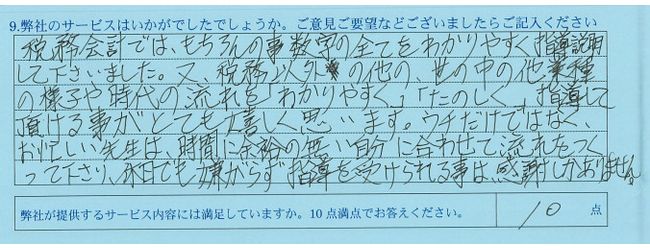 9.弊社のサービスはいかがでしたでしょうか。ご意見ご要望などございましたらご記入ください
税務会計では、もちろんの事数字の全てをわかりやすく指導説明
して下さいました。又、税務以外の他の、世の中の他業種
の様子や時代の流れを「わかりやすく」「たのしく」指導して
頂ける事がとても嬉しく思います。ウチだけではなく、
お忙しい先生は、時間に余裕の無い自分に合わせて流れをつく
って下さり、休日でも嫌がらず指導を受けられる事は感謝しかありません。
弊社が提供するサービス内容には満足していますか。10点満点でお答えください。 10 点